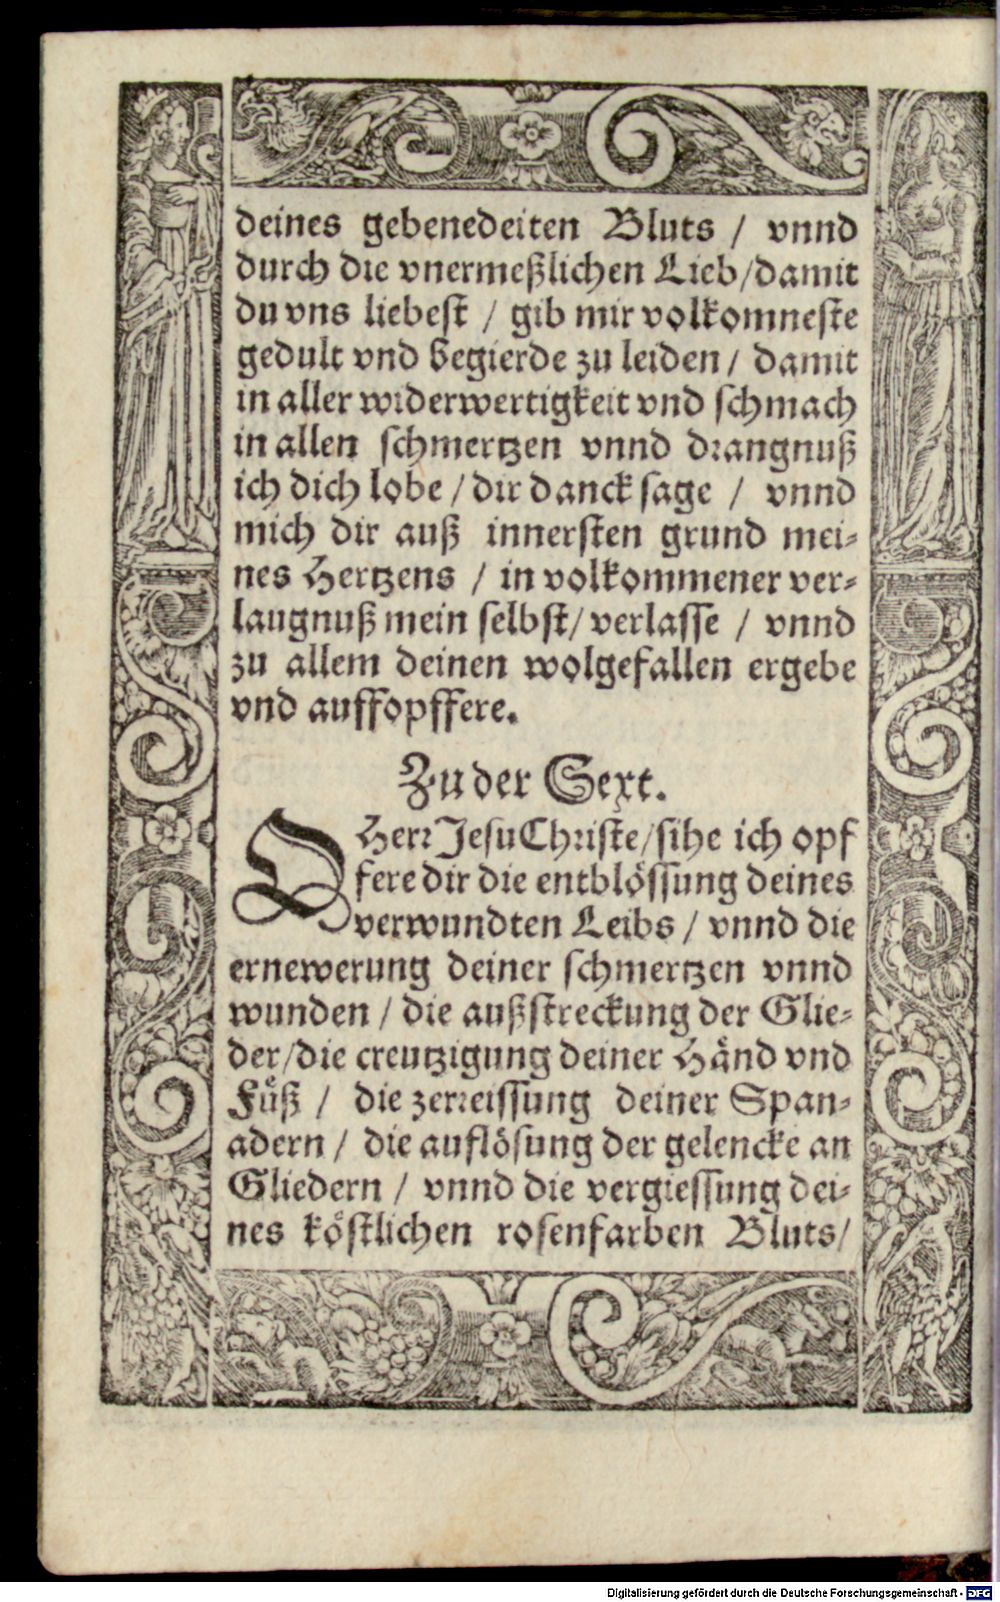 deines gebenedeiten Bluts / vnnd
durch die vnermeßlichen Lieb/damit
du vns liebest / gib mir volkomneste
gedult vnd begierde zu leiden / damit
in aller widerwertigkeit vnd schmach
in allen schmertzen vnnd drangnuß
ich dich lobe / dir danck sage / vnnd
mich dir auß innersten grund mei-
nes Hertzens / in volkommener ver-
laugnuß mein selbst/ verlasse / vnnd
zu allem deinen wolgefallen ergebe
vnd auffopffere.
Zu der Sext.
O Herr Jesu Christe/sihe ich opf
fere dir die entblössung deines
verwundten Leibs / vnnd die
ernewerung deiner schmertzen vnnd
wunden / die außstreckung der Glie-
der/die creutzigung deiner Händ vnd
Füß / die zerreissung deiner Span-
adern / die auflösung der gelencke an
Gliedern / vnnd die vergiessung dei-
nes köstlichen rosenfarben Bluts/
Digitalisierung gefördert durch die Deutsche Forschungsgemeinschaft - DFG